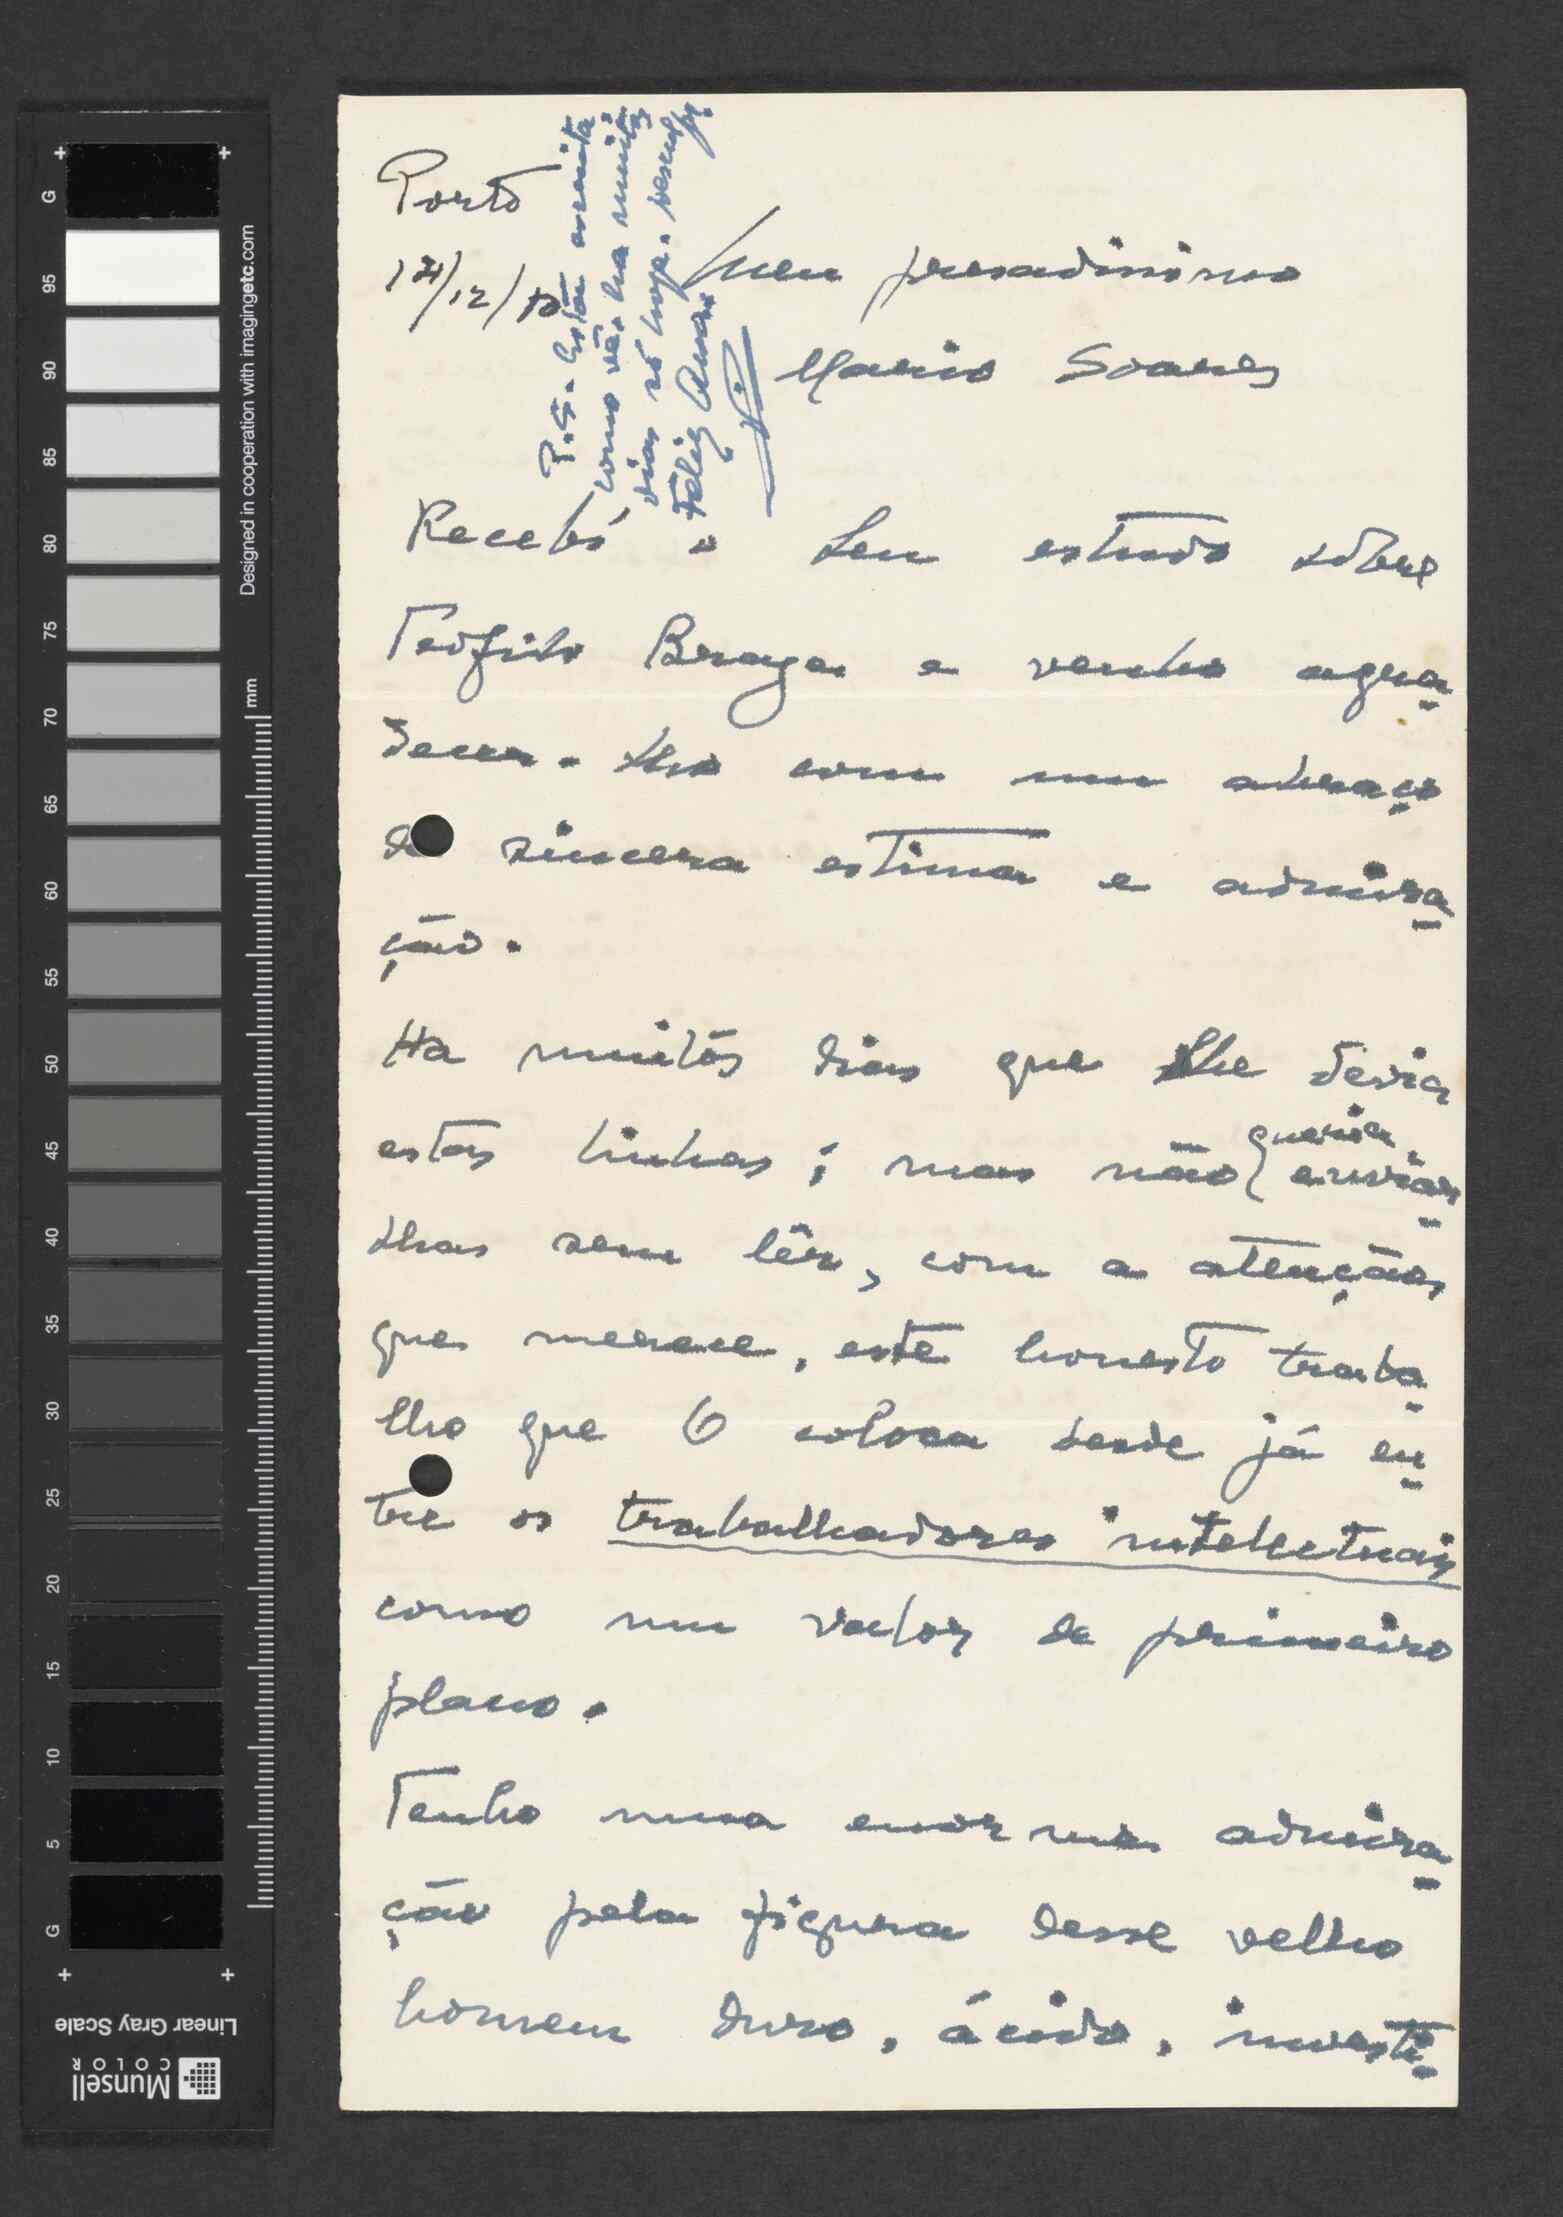 Porto
17/12/50
P.S. Está escrita
como vê, ha muitos
dias só hoje. Desculpe
Feliz Ano.
Meu presadissimo
Mario Soares
Recebi o seu estudo sôbre
Teofilo Braga e venho agra
decer-lho com um abraço
de sincera estima e admira
ção.
Ha muitos dias que lhe devia
estas linhas; mas não queria enviar
lhas sem lêr, com a atenção,
que merece, este honesto traba
lho que O coloca desde já en
tre os trabalhadores intelectuais
como um valor de primeiro
plano.
Tenho uma enorme admira
ção pela figura desse velho
homem duro, ácido, investi
Designed in cooperation with imagingetc.com
mm
G
95
90
85
80
75
70
65
60
55
50
45
40
35
30
25
20
15
10
5
G
Linear Gray Scale
Munsell
COLOR